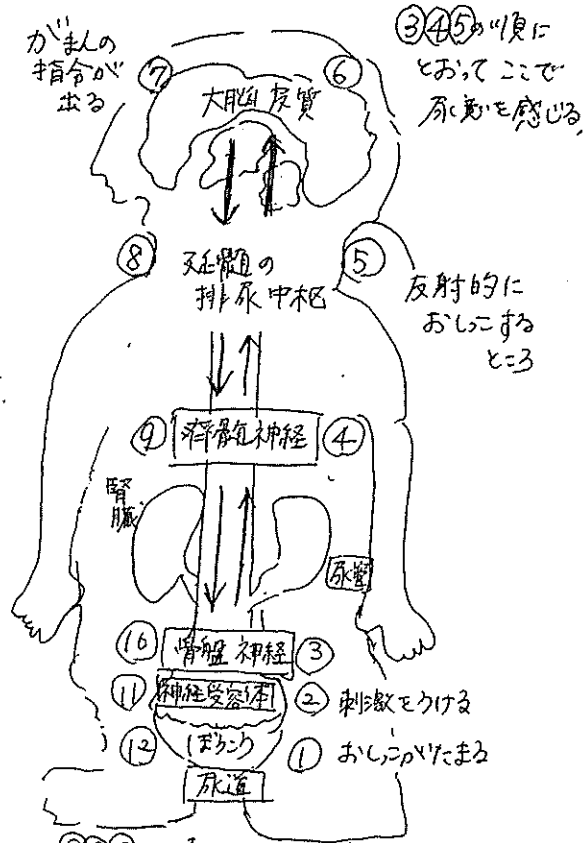 がまんの
指令が
出る
⑦
⑥
③④⑤の順に
とおって ここで
尿意を感じる
大脳皮質
⑧
延髄の
排尿中枢
⑤
反射的に
おしっこする
ところ
⑨
脊髄神経
④
腎臓
尿管
⑩
骨盤神経
③
⑪
神経受容体
② 刺激をうける
⑫
ぼうこう
① おしっこがたまる
尿道